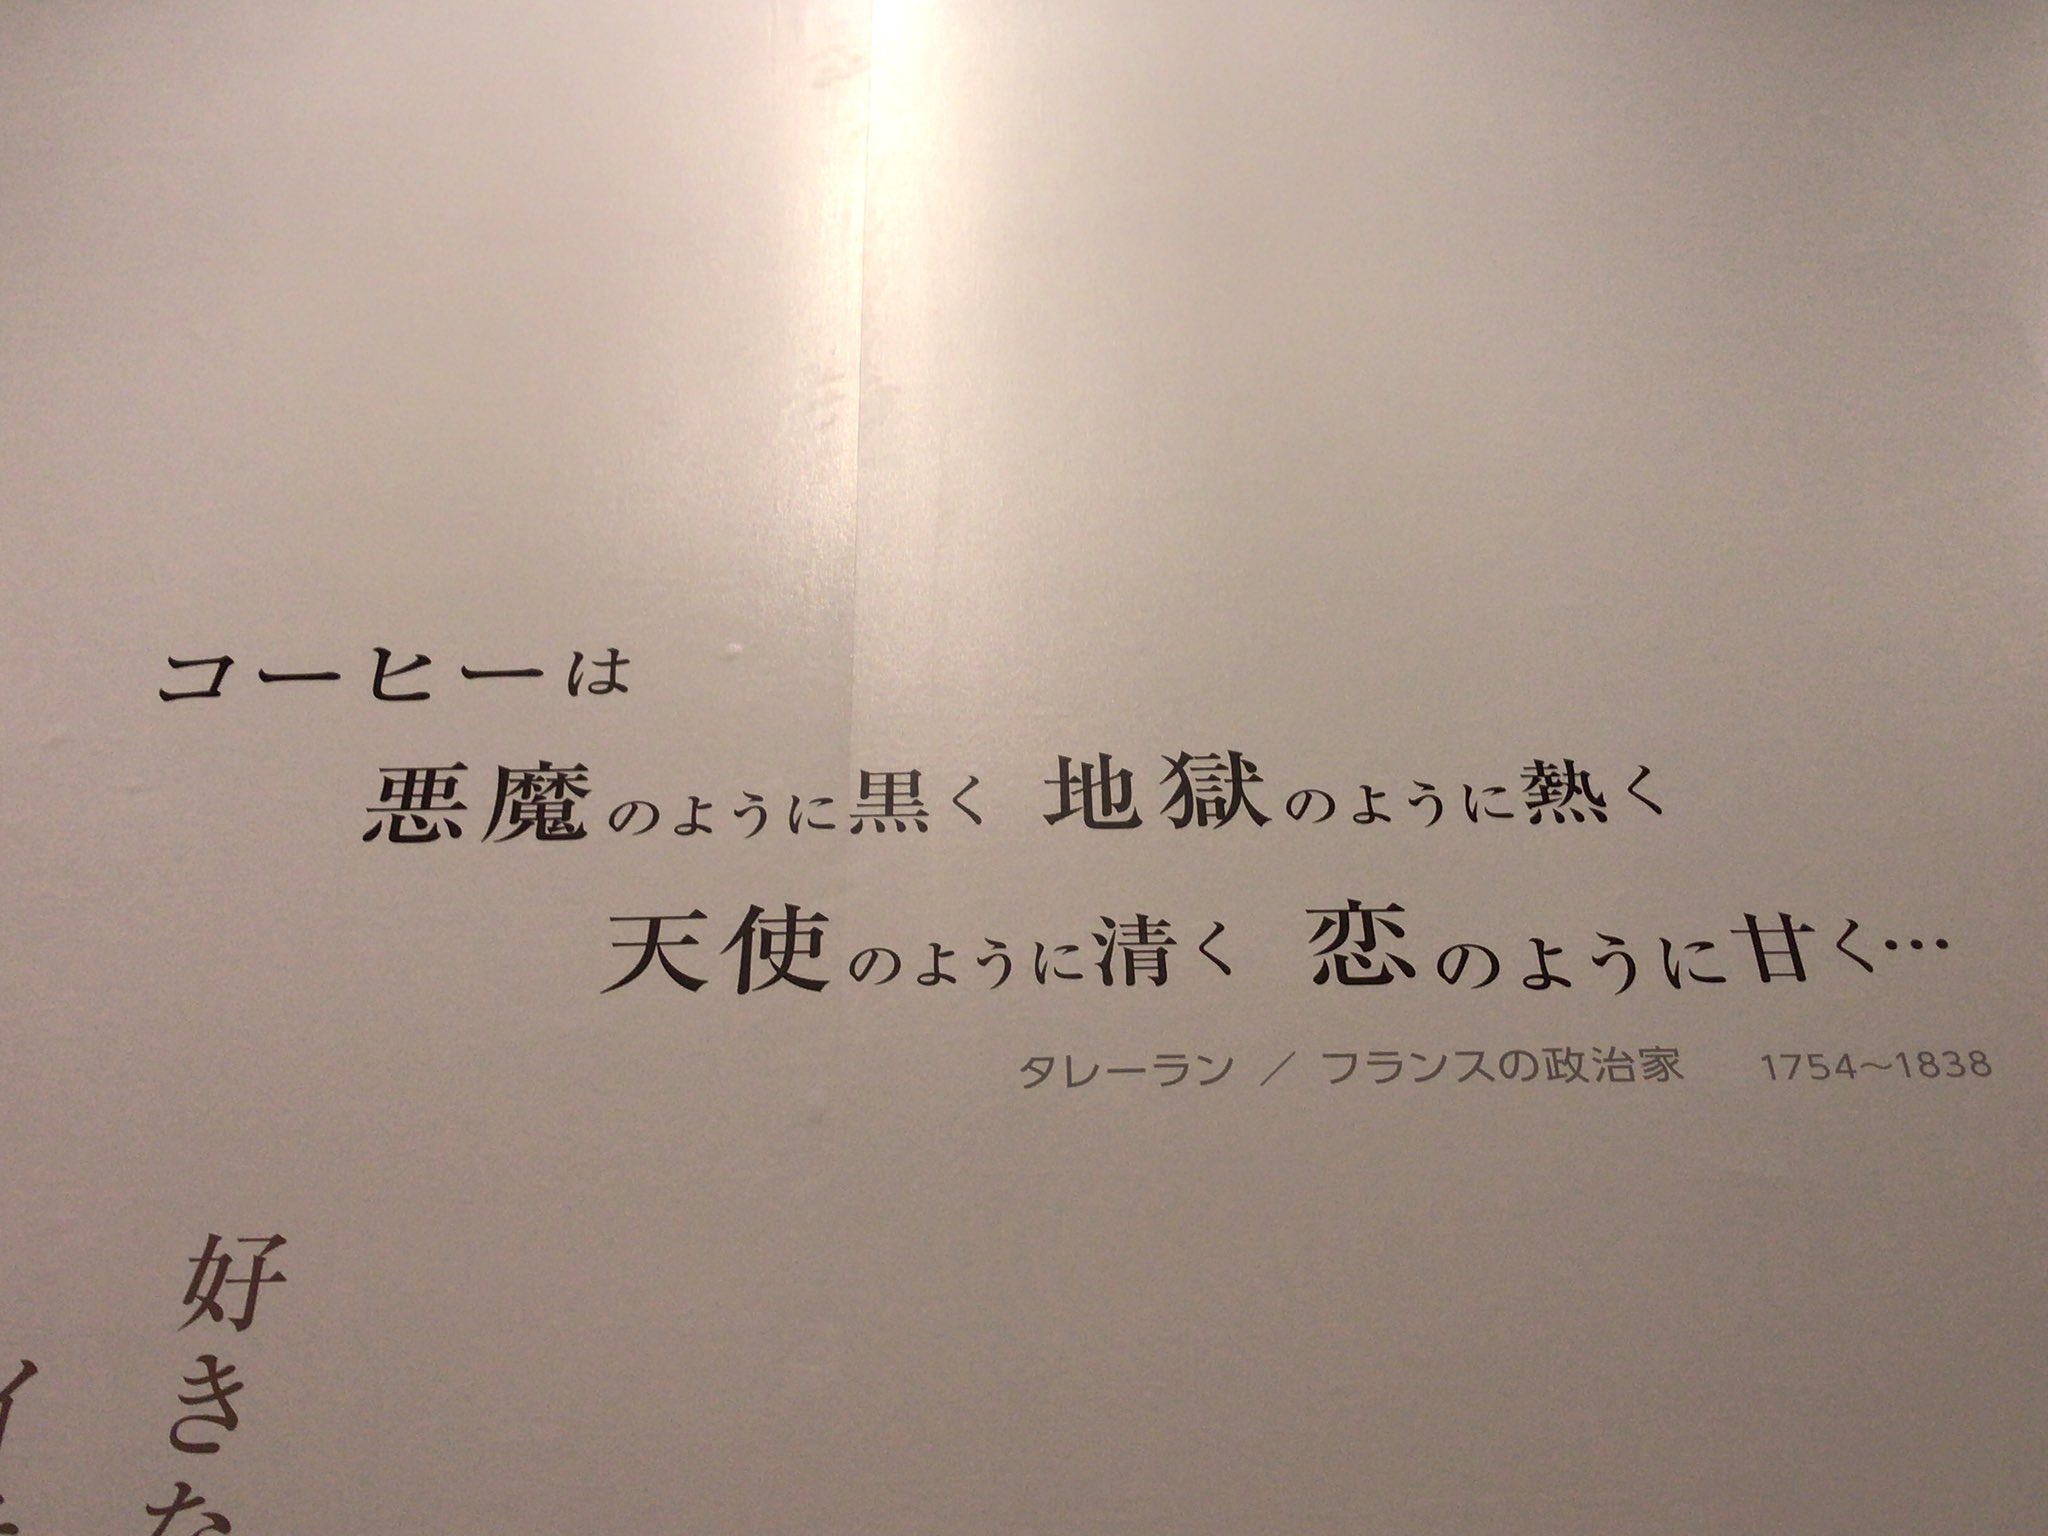 コーヒーは
悪魔のように黒く 地獄のように熱く
天使のように清く 恋のように甘く…
タレーラン / フランスの政治家 1754～1838
好きな